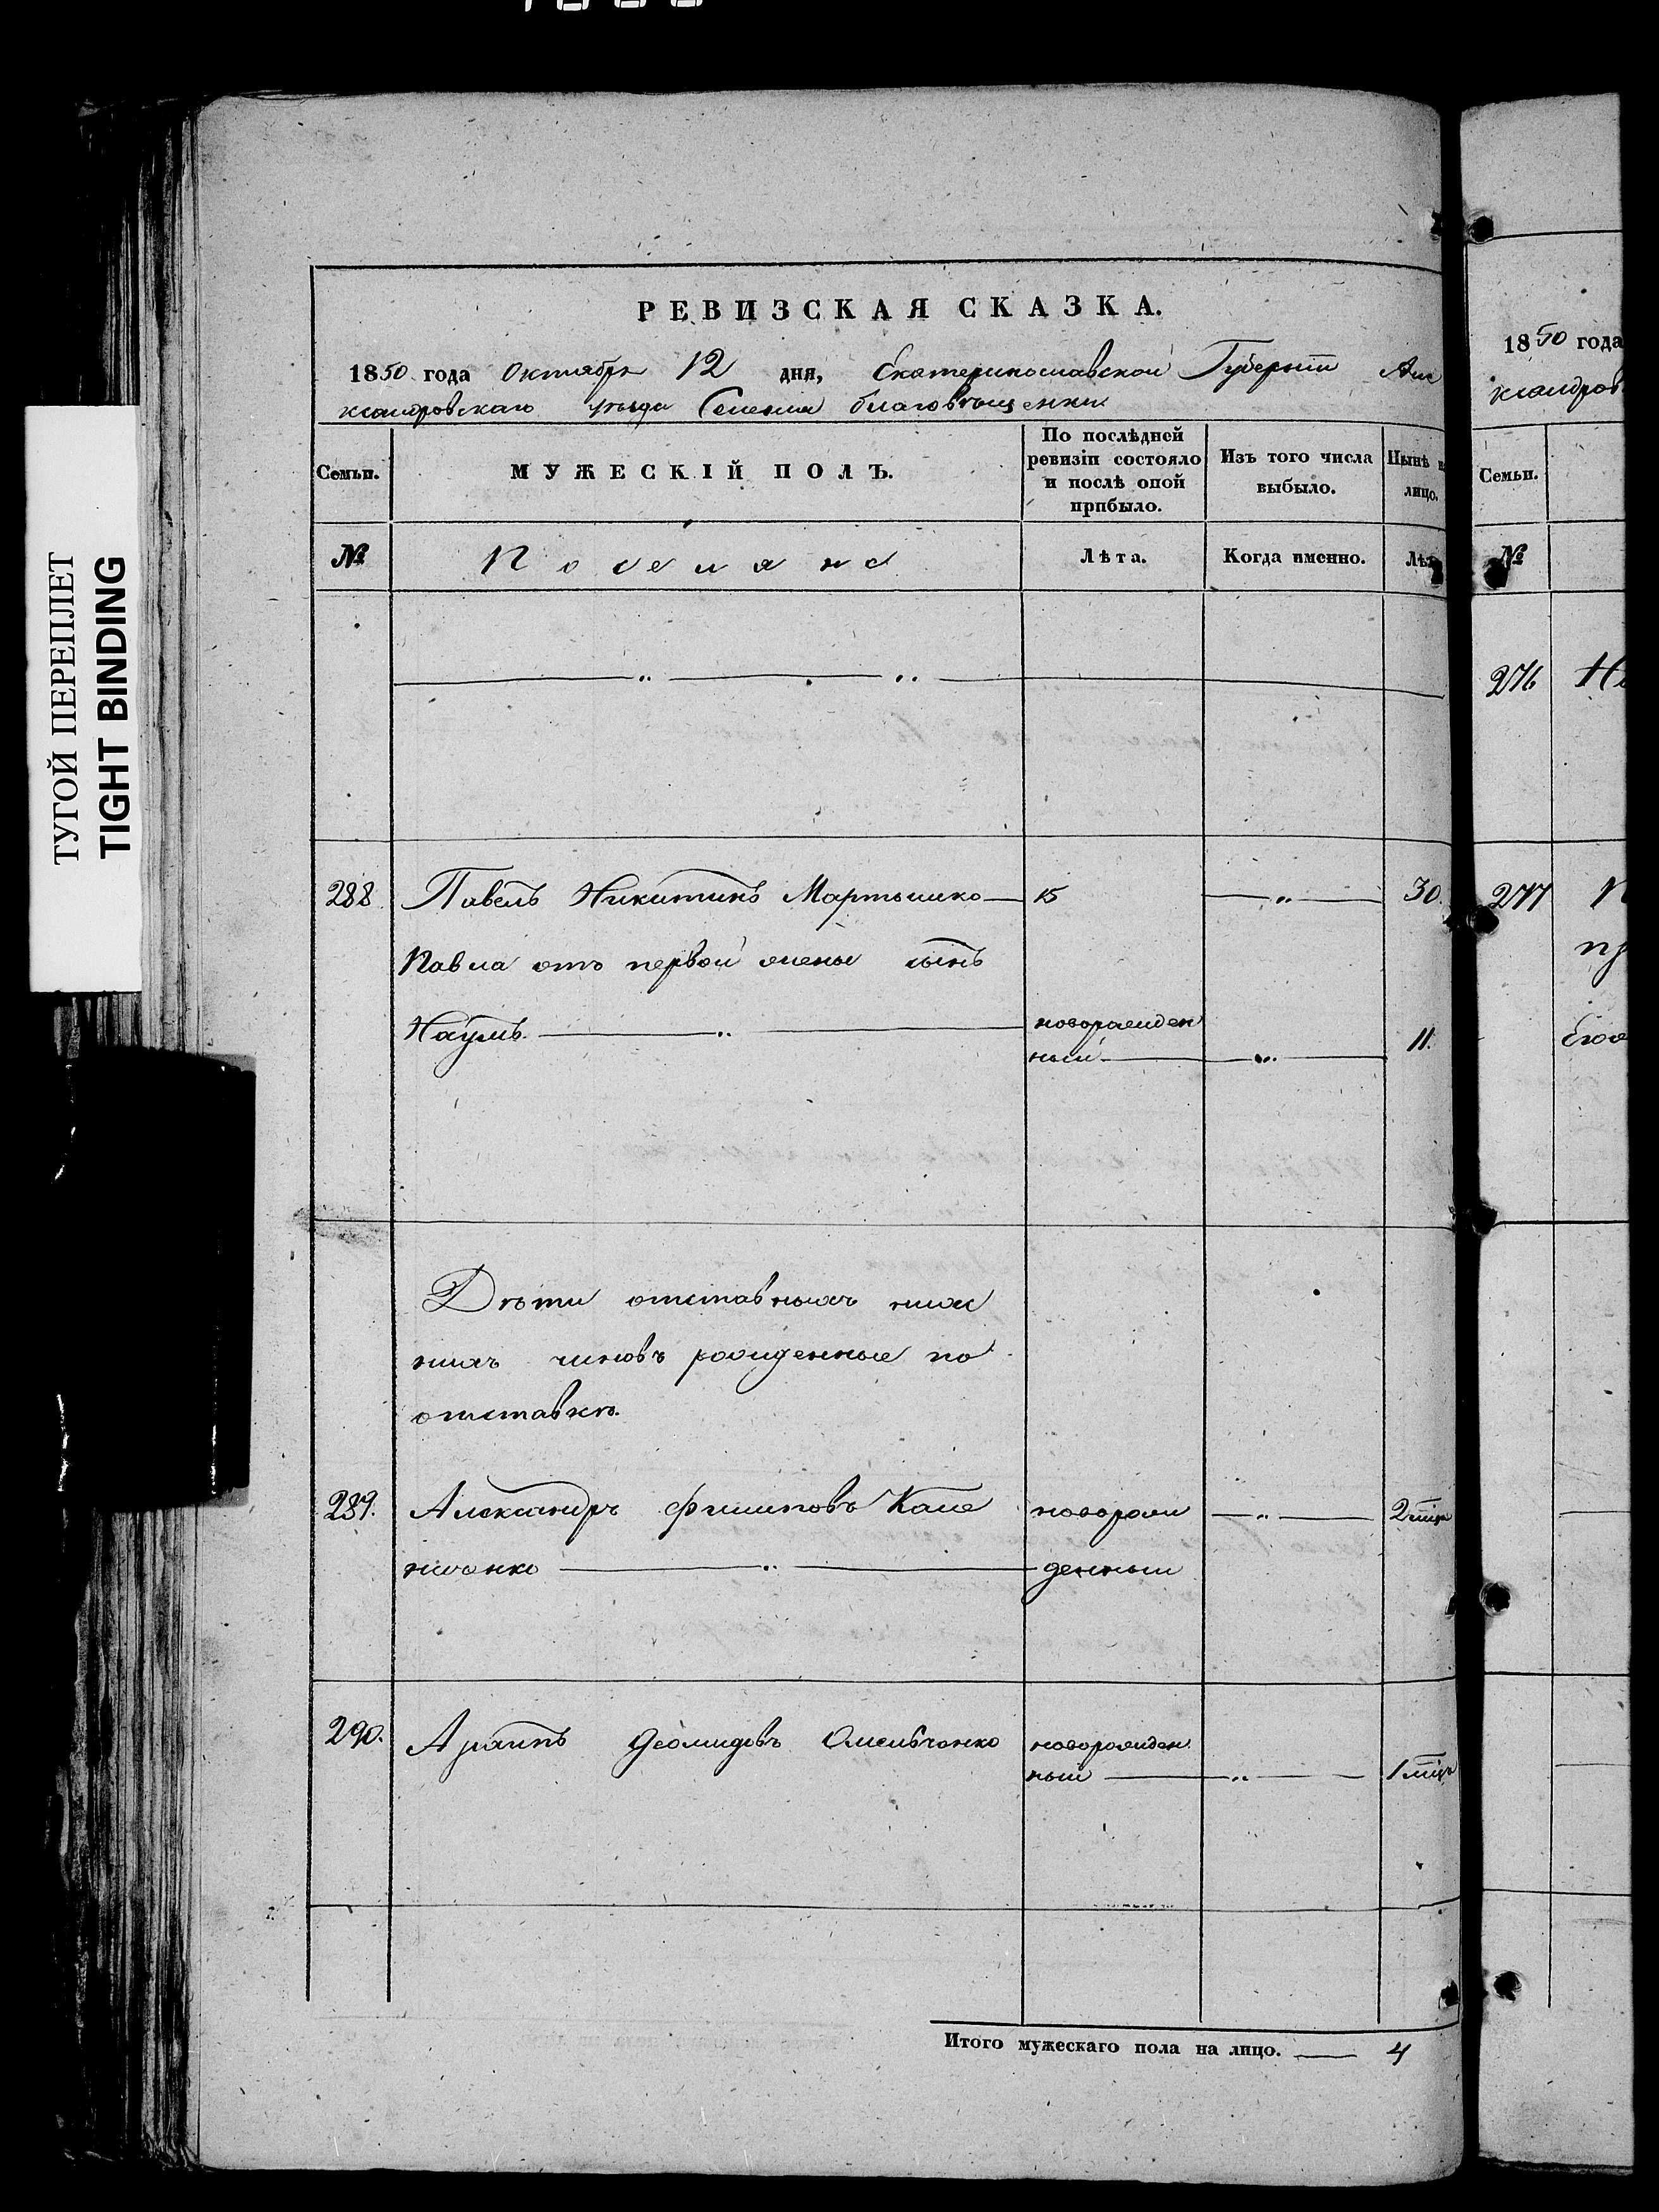 ТУГОЙ ПЕРЕПЛЕТ
TIGHT BINDING
РЕВИЗСКАЯ СКАЗКА.
1850 года Октября 12 дня, Екатеринославской Губерніи Але
ксандровскаго уѣзда Селенія благовѣщенки
Семьи.
МУЖЕСКІЙ ПОЛЪ.
По послѣдней
ревизіи состояло
и послѣ оной
прибыло.
Изъ того числа
выбыло.
Нынѣ н
лицо.
№
Поселяне
Лѣта.
Когда именно.
Лѣт
288 Павелъ Никитинъ Мартышко — 15 — „ — 30.
Павла отъ первой жены сынъ
Наумъ. — „ — новорожден
ный — „ — 11.
Дѣти отставныхъ ниж
нихъ чиновъ рожденные по
отставкѣ.
289. Александръ Филиповъ Кале новорож — „ — 2 мѣся
ниченко — „ — денный
290. Архипъ Деомидовъ Омельченко новорожден
ный — „ — 1 мѣся
Итого мужескаго пола на лицо. — 4
1850 года
ксандров
Семьи.
№
276
277
пр
Его